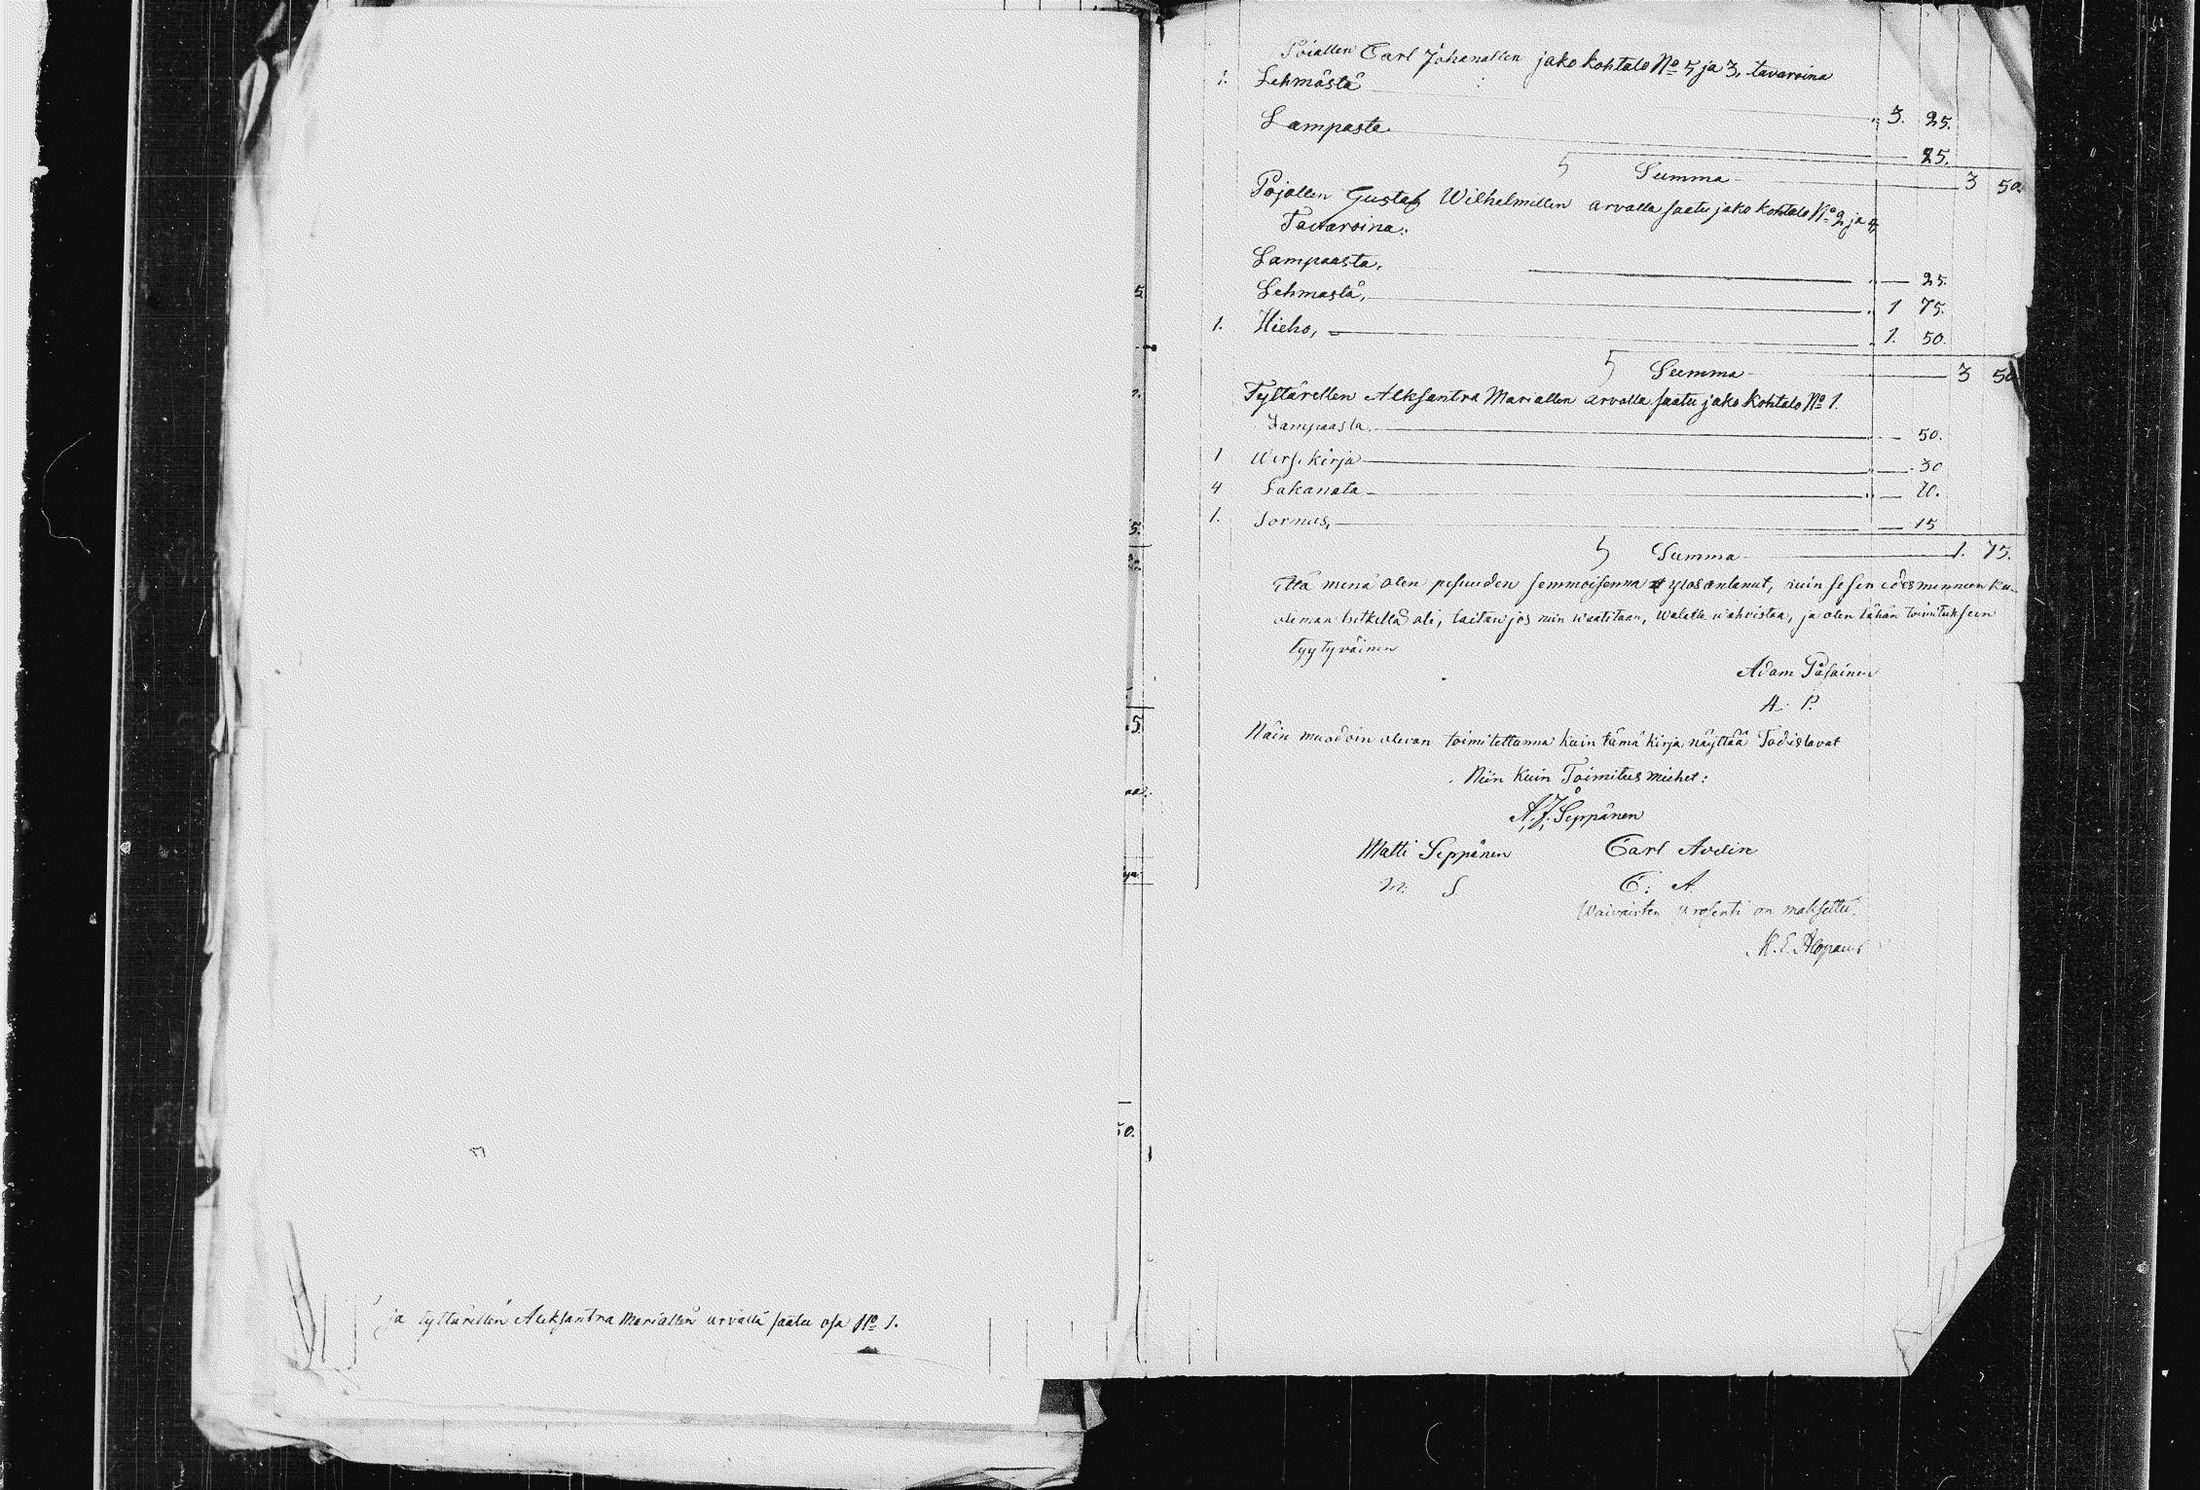 Poiallen Carl Johanallen jako kohtalo No 5 ja 3, tavaroina
1. Lehmästä " 3. 25.
Lampasta 25.
Summa 3 50.
Pojallen Gustaf Wilhelmillen arvalla saatu jako kohtalo No 2 ja 4,
Tavaroina:
Lampaasta, " — 25.
Lehmästä, " 1 75.
1. Hieho, " 1. 50.
Summa 3 50
Tyttärellen Alksantra Mariallen arvalla saatu jako kohtalo No 1.
Lampaasta " — 50.
1 Wirs. kirja " — 30
4 Lakanata " — 20.
1. Sormus, — 15
Summa 1. 75.
Että minä olen pesuuden semmoisenna ylosantanut, kuin se sen edesmenneen kuo-
oleman hetkellä oli, taitan jos niin waaditaan, walalla wahvistaa, ja olen tähän toimitukseen
tyytyväinen
Adam Päsäinen
A. P.
Näin muodoin olevan toimitettunna kuin tämä kirja näyttää Todistavat
Niin kuin Toimitus miehet:
A. J. Seppänen
Matti Seppänen Carl Avelin
M. S C. A.
Waivaisten prosenti on maksettu.
K. E. Alopaeus
ja tyttärellen Aleksantra Mariallen arvalla saatu osa No 1.